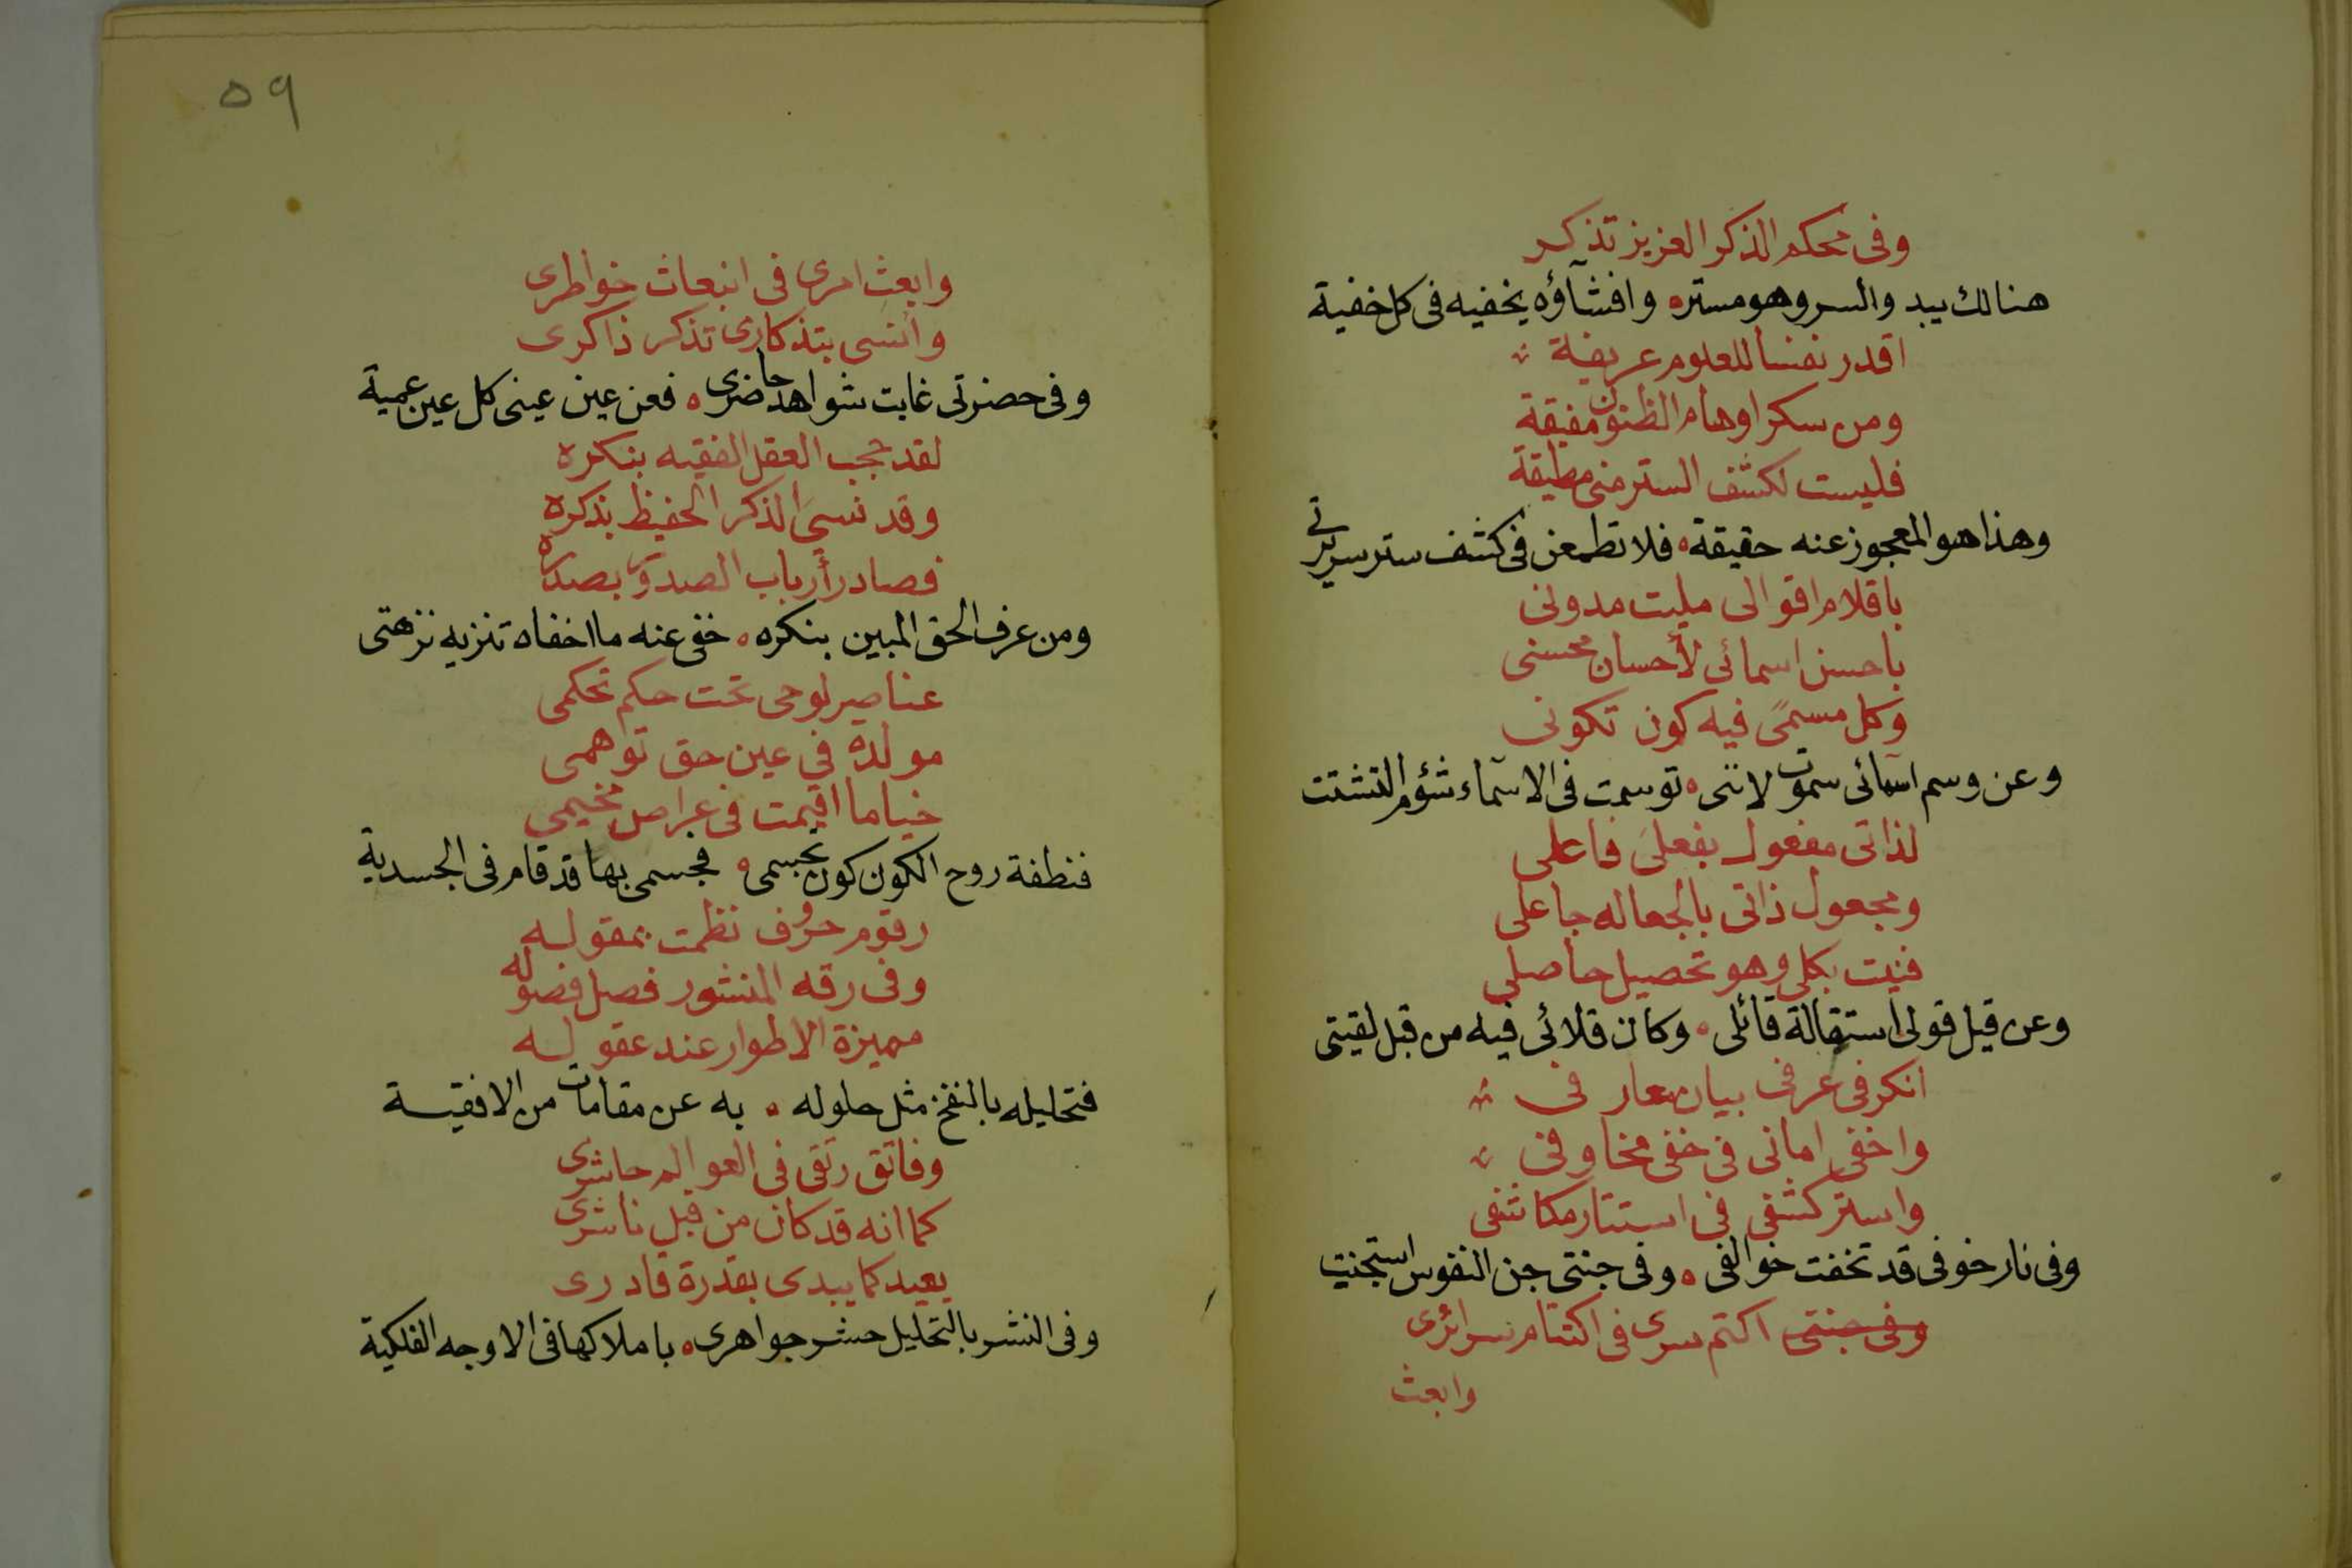 وفى محكم الذكر العزيز تذكر
هنالك يبد والسر وهو مستره وافشآؤه يخفيه فى كل خفية
اقدر نفسا للعلوم عريفة
ومن سكر اوهام الظنون مفيقة
فليست لكشف الستر منى مطيقة
وهذا هو المعجوز عنه حقيقة فلا تطمعن فى كشف ستر سريرتى
باقلام اقوالى مليت مدونى
باحسن اسمائى لأحسان محسنى
وكل مسمىً فيه كون تكونى
وعن وسم اسمآئى سموت لاننى توسمت فى الاسمآء شؤم التشتت
لذاتى مفعول بفعلى فاعلى
ومجعول ذاتى بالجعاله جاعلى
فنيت بكلى وهو تحصيل حاصلى
وعن قيل قولى استقالة قائلى وكان قلائى فيه من قبل لقيتى
انكر فى عرفى بيان معارفى
واخفى امانى فى خفى مخاوفى
واستر كشفى فى استتار مكاشفى
وفى نار خوفى قد تخفت خوالفى وفى جنتى جن النفوس استجنت
وفى جنتى اكتم سرى فى اكتتام سرائرى
وابعث
٥٩
وابعث امرى فى انبعاث خواطرى
وانسى بتذكارى تذكر ذاكرى
وفى حضرتى غابت شواهد حاضرى فعن عين عينى كل عين عمية
لقد حجب العقل الفقيه بنكره
وقد نسى الذكر الحفيظ بذكره
فصادر أرباب الصدور بصدره
ومن عرف الحق المبين بنكره خفى عنه ما اخفاه تنزيه نزهتى
عناصير لوحى تحت حكم تحكمى
مولدة فى عين حق توهمى
خياما اقيمت فى عراص مخيمى
فنطفة روح الكون كون تجسمى فجسمى بها قد قام فى الجسدية
رقوم حروف نظمت بمقوله
وفى رقه المنشور فصل فصوله
مميزة الاطوار عند عقوله
فتحليله بالنفخ مثل حلوله به عن مقامات من الافقية
وفاتق رتقى فى العوالم حاشرى
كما انه قد كان من قبل ناشرى
يعيد كما يبدى بقدرة قادرى
وفى النشر بالتحليل حشر جواهرى باملاكها فى الاوجه الفلكية